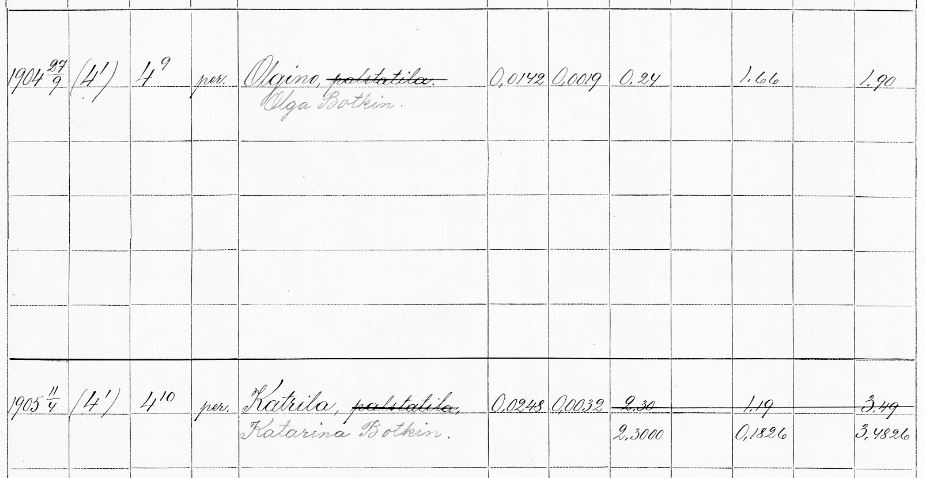 1904 27/9 (4¹) 4⁹ per. Olgino, palstatila. 0,0142 0,0019 0.24 1.66 1.90
Olga Botkin.
1905 11/4 (4¹) 4¹⁰ per. Katrila, palstatila, 0,0248 0,0032 2.30 1.19 3.49
Katarina Botkin. 2,3000 0,1826 3,4826